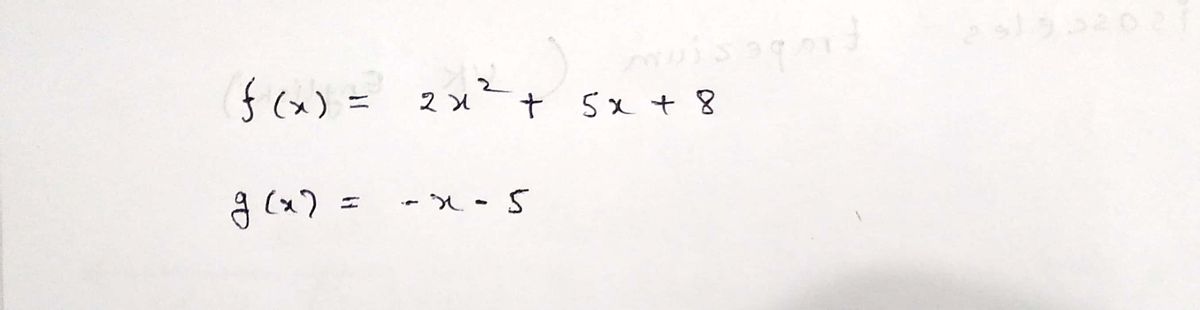 f(x) = 2x² + 5x + 8
g(x) = -x - 5